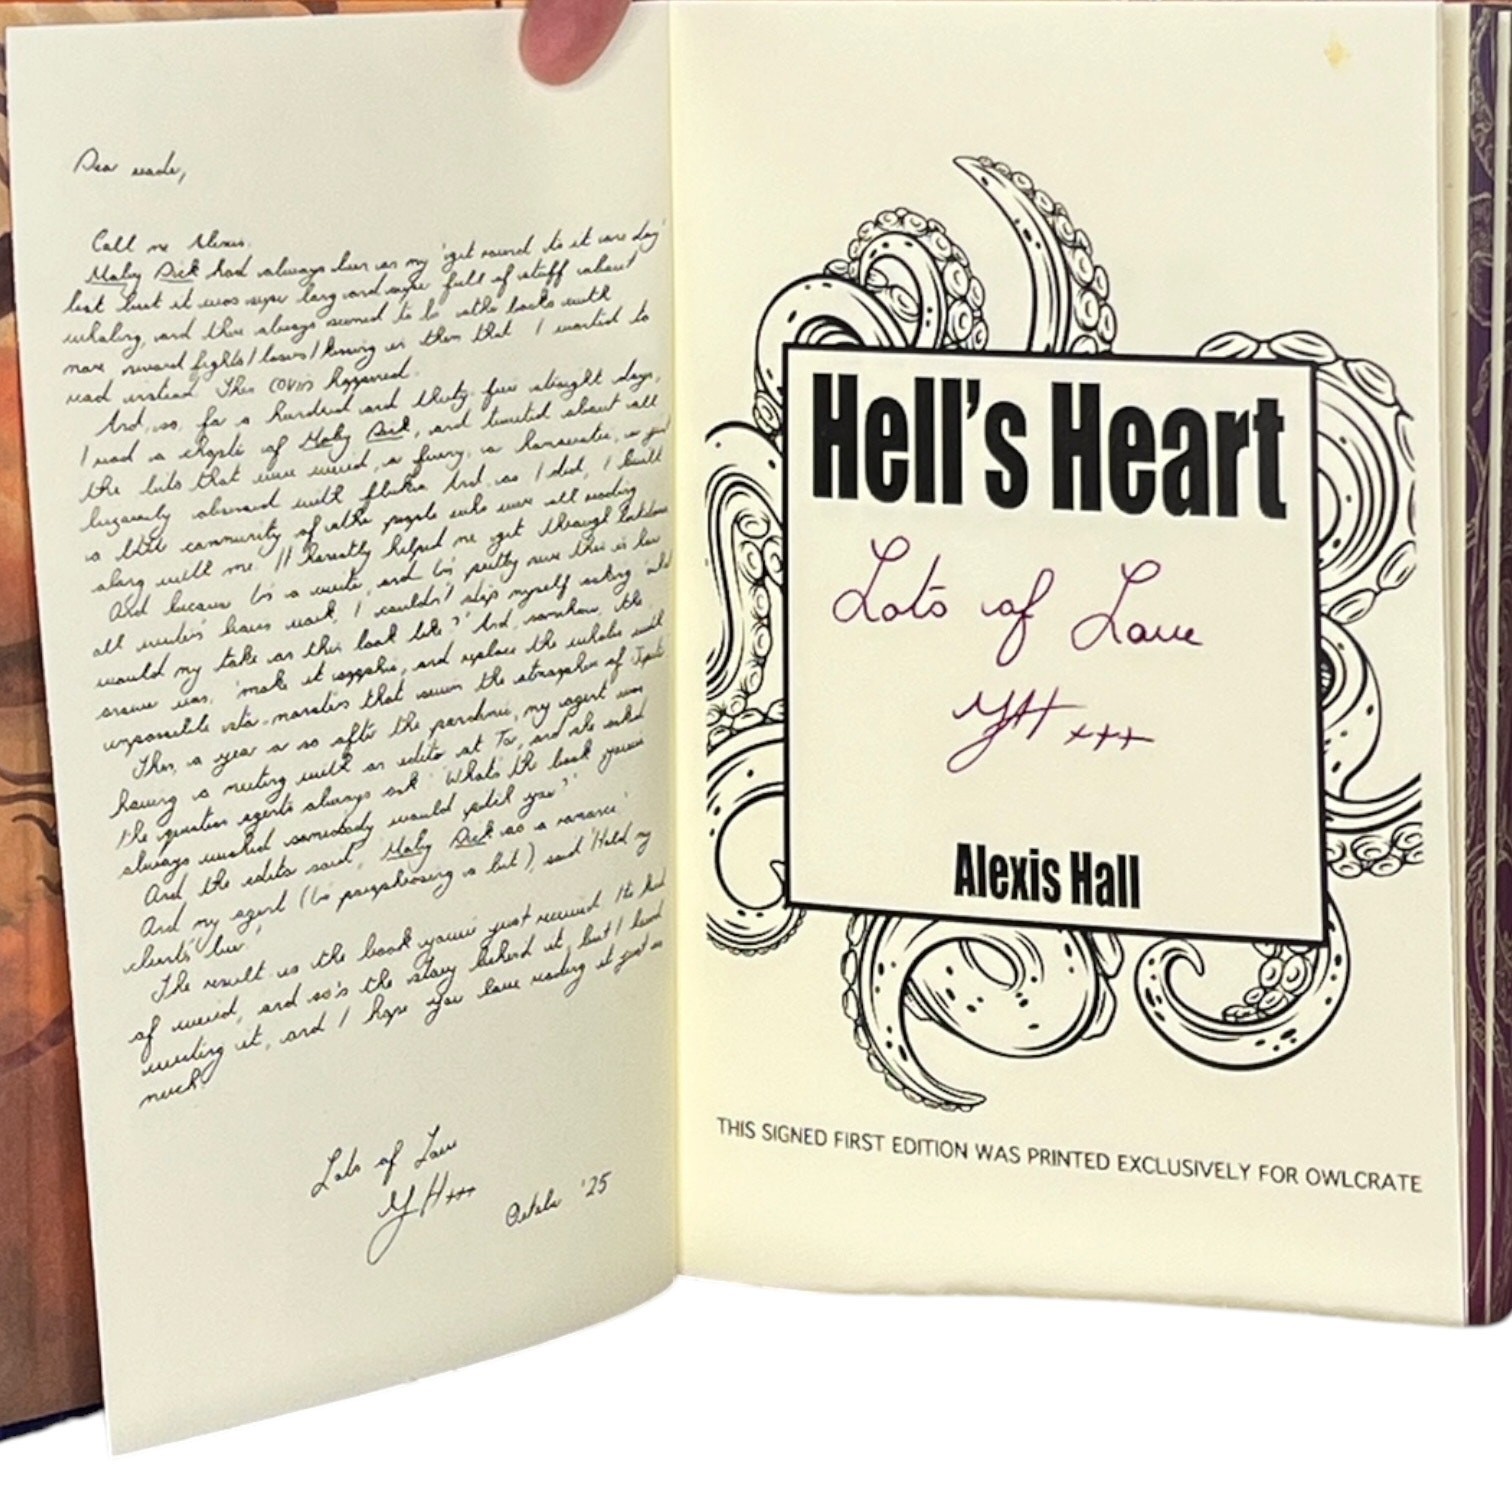 Dear reader,
Call me Alexis.
Moby Dick had always been on my 'get round to it one day'
list but it was super long and super full of stuff about
whaling, and there always seemed to be other books with
more sword fights/lasers/kissing in them that I wanted to
read instead. Then COVID happened.
And, so, for a hundred and thirty-five straight days,
I read a chapter of Moby Dick, and tweeted about all
the bits that were weird, or funny, or homoerotic, or just
bizarrely obsessed with flukes. And, as I did, I built
a little community of other people who were all reading
along with me. It honestly helped me get through lockdown.
And because I'm a writer, and I'm pretty sure this is how
all writers' brains work, I couldn't stop myself asking 'what
would my take on this look like?' And, somehow, the
answer was, 'make it sapphic, and replace the whales with
impossible star-monsters that swim the atmosphere of Jupiter'
Then, a year or so after the pandemic, my agent was
having a meeting with an editor at Tor, and she asked
the question agents always ask: 'What's the book you've
always wished somebody would pitch you?'
And the editor said, 'Moby Dick as a romance.'
And my agent (I'm paraphrasing a bit), said 'Hold my
client's beer.'
The result is the book you've just received. It's kind
of weird, and so's the story behind it, but I loved
writing it, and I hope you love reading it just as
much.
Lots of Love
AJH xxx
October '25
Hell's Heart
Lots of Love
AJH xxx
Alexis Hall
THIS SIGNED FIRST EDITION WAS PRINTED EXCLUSIVELY FOR OWLCRATE